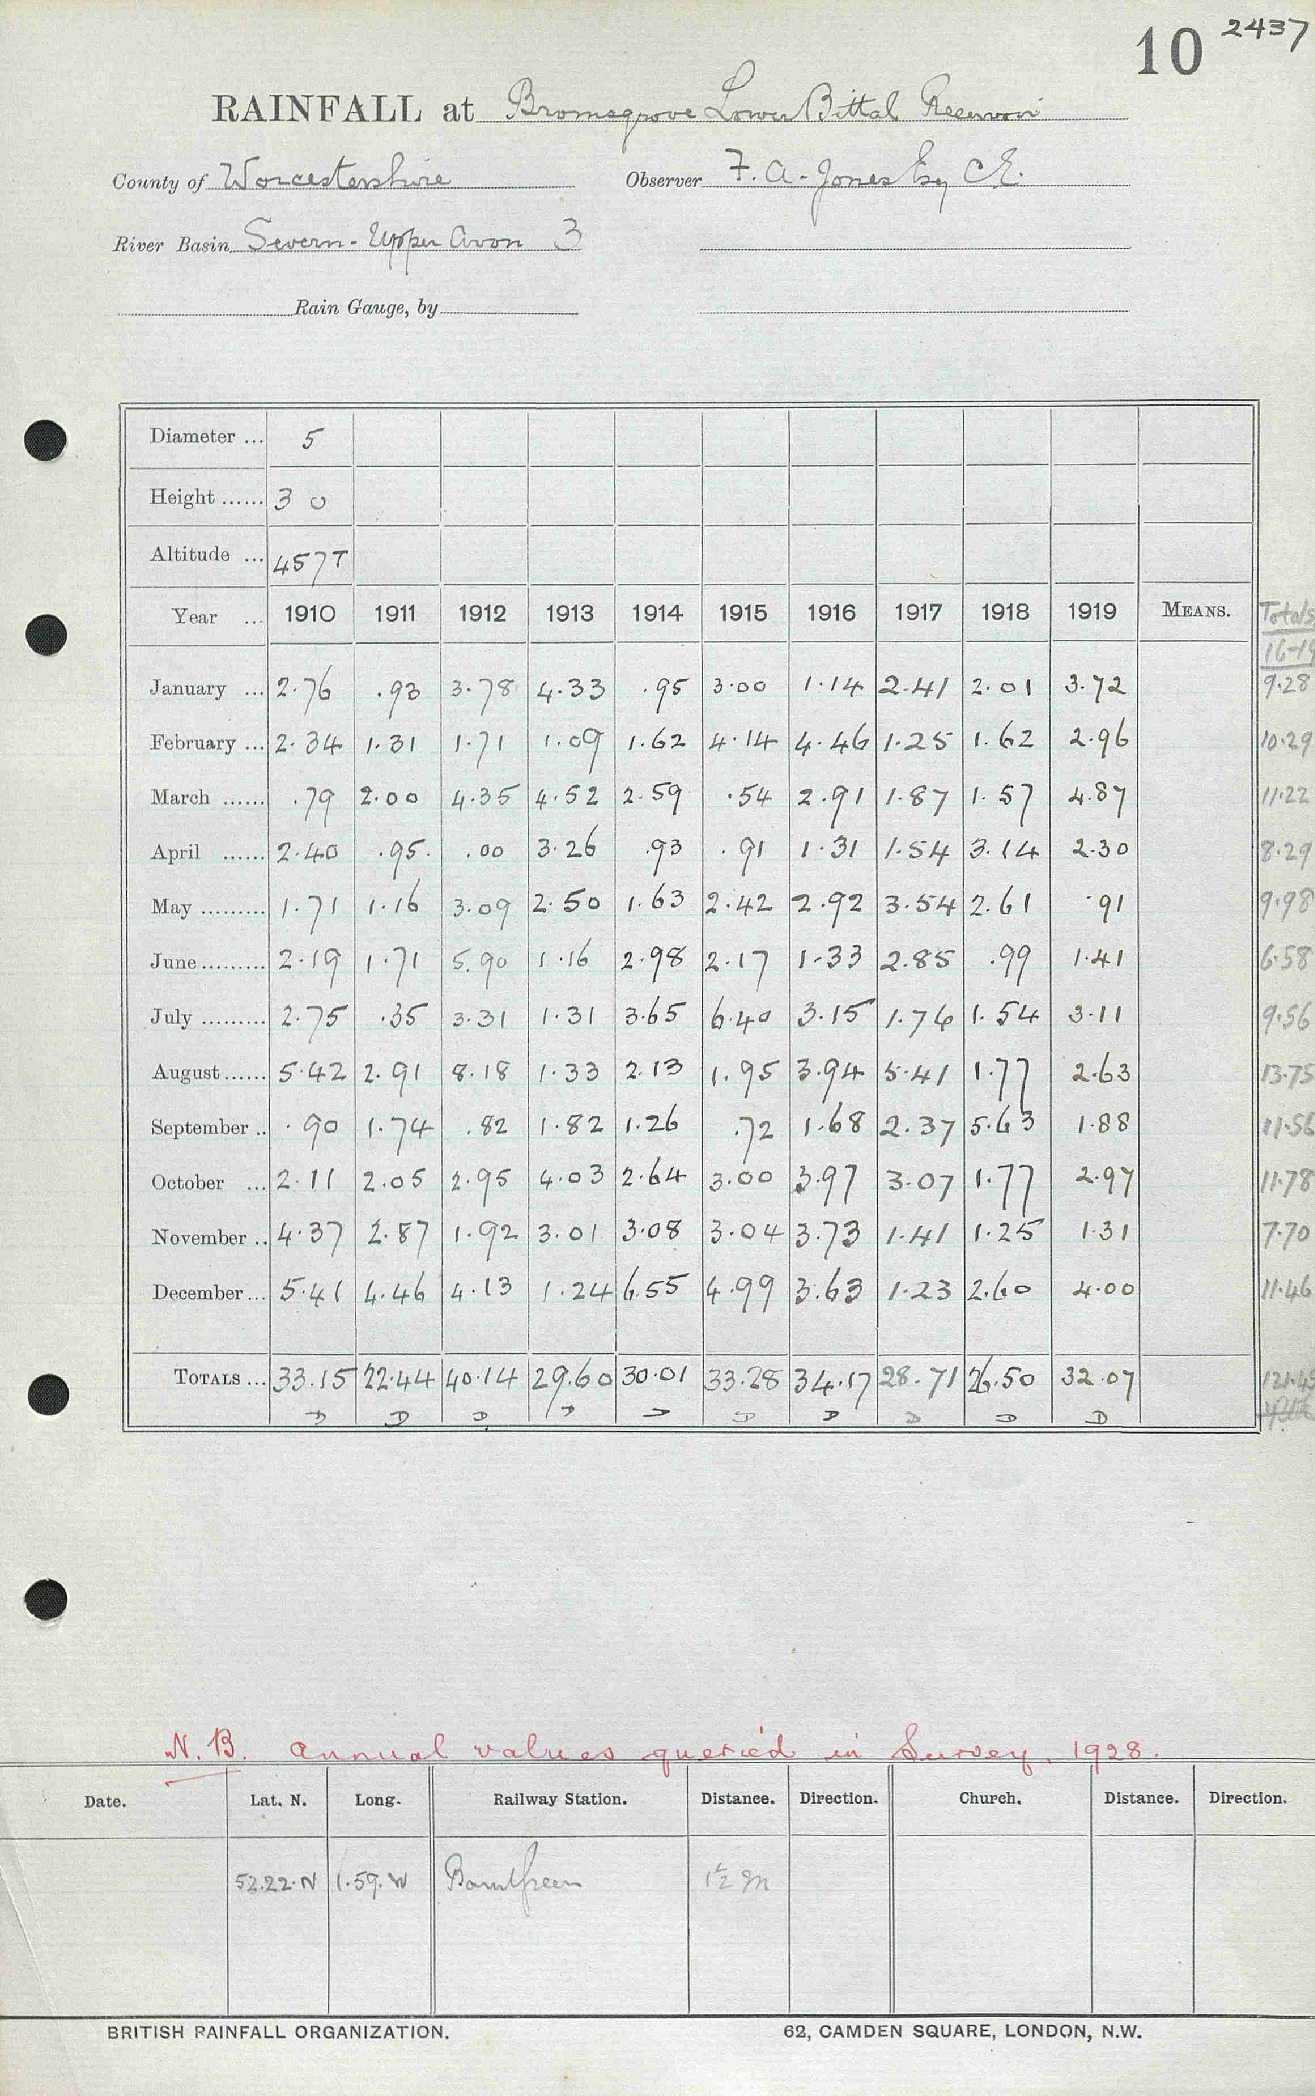 10 2437
RAINFALL at Bromsgrove Lower Bittal Reservoir
County of Worcestershire Observer F. A. Jones Esq C.E.
River Basin Severn - Upper Avon 3
Rain Gauge, by
Diameter ... 5
Height ...... 3 0
Altitude ... 457 T
Year ... 1910 1911 1912 1913 1914 1915 1916 1917 1918 1919 MEANS. Totals
16-19
January ... 2.76 .93 3.78 4.33 .95 3.00 1.14 2.41 2.01 3.72 9.28
February ... 2.34 1.31 1.71 1.09 1.62 4.14 4.46 1.25 1.62 2.96 10.29
March ...... .79 2.00 4.35 4.52 2.59 .54 2.91 1.87 1.57 4.87 11.22
April ...... 2.40 .95 .00 3.26 .93 .91 1.31 1.54 3.14 2.30 8.29
May ......... 1.71 1.16 3.09 2.50 1.63 2.42 2.92 3.54 2.61 .91 9.98
June ......... 2.19 1.71 5.90 1.16 2.98 2.17 1.33 2.85 .99 1.41 6.58
July ......... 2.75 .35 3.31 1.31 3.65 6.40 3.15 1.76 1.54 3.11 9.56
August ...... 5.42 2.91 8.18 1.33 2.13 1.95 3.94 5.41 1.77 2.63 13.75
September .. .90 1.74 .82 1.82 1.26 .72 1.68 2.37 5.63 1.88 11.56
October ... 2.11 2.05 2.95 4.03 2.64 3.00 3.97 3.07 1.77 2.97 11.78
November .. 4.37 2.87 1.92 3.01 3.08 3.04 3.73 1.41 1.25 1.31 7.70
December ... 5.41 4.46 4.13 1.24 6.55 4.99 3.63 1.23 2.60 4.00 11.46
TOTALS ... 33.15 22.44 40.14 29.60 30.01 33.28 34.17 28.71 26.50 32.07 121.45
D D D D D D D D D D
N.B. Annual values queried in Survey. 1928.
Date. Lat. N. Long. Railway Station. Distance. Direction. Church. Distance. Direction.
52.22.N 1.59.W Barnt Green 1½ m
BRITISH RAINFALL ORGANIZATION. 62, CAMDEN SQUARE, LONDON, N.W.